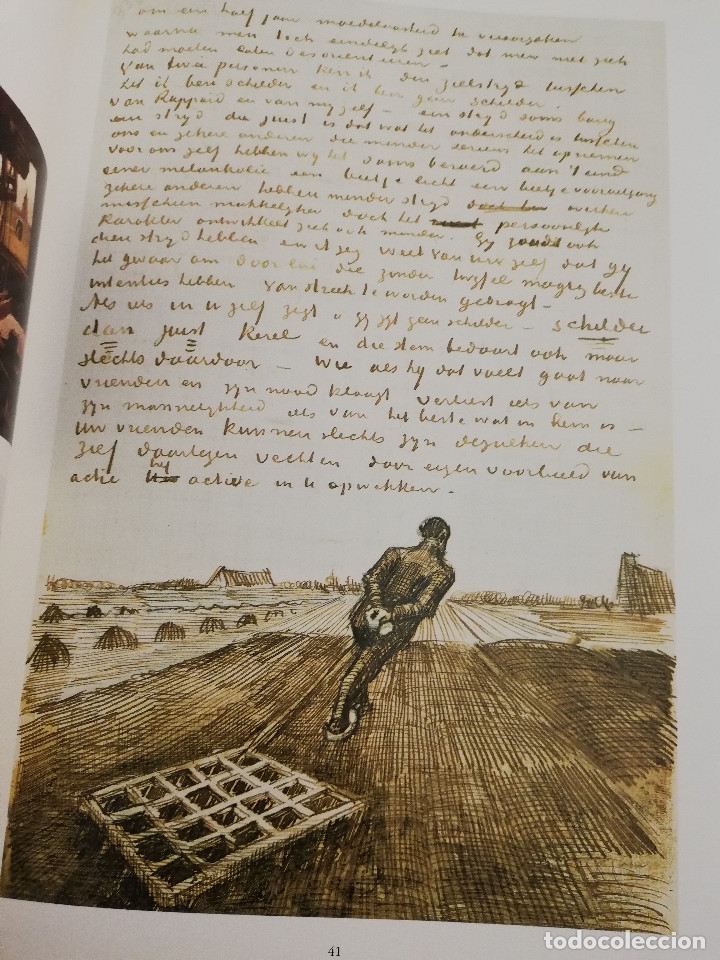 om een half jaar moedeloosheid te veroorzaken
waarna men toch eindelijk ziet dat men niet zich
had moeten laten desorienteren –
Van twee personen ken ik den zielstryd tusschen
het ik ben schilder en ik ben geen schilder.
Van Rappard en van myzelf – een stryd soms bang
een stryd die juist is dat wat het onderscheid is tusschen
ons en zekere anderen die minder serieus het opnemen
voor ons zelf hebben wy het soms beroerd aan 't eind
eener melankolie een beetje licht een beetje vooruitgang
zekere anderen hebben minder stryd werken
misschien makkelyker doch het persoonlijk
karakter ontwikkelt zich ook minder. Gy zoudt ook
dien stryd hebben en ik zeg weet van uw zelf dat gy
het gevaar om door lui die zonder twyfel magnifieke
intenties hebben van streek te worden gebragt –
Als iets in U zelf zegt "gy zyt geen schilder – schilder
dan juist kerel en die stem bedaart ook maar
slechts daardoor – Wie als hy dat voelt gaat naar
vrienden en zyn nood klaagt verliest iets van
zyn mannelykheid iets van het beste wat in hem is –
Uw vrienden kunnen slechts zyn dezulken die
zelf daartegen vechten door eigen voorbeeld van
actie het active in U opwekken.
41
todocoleccion.net